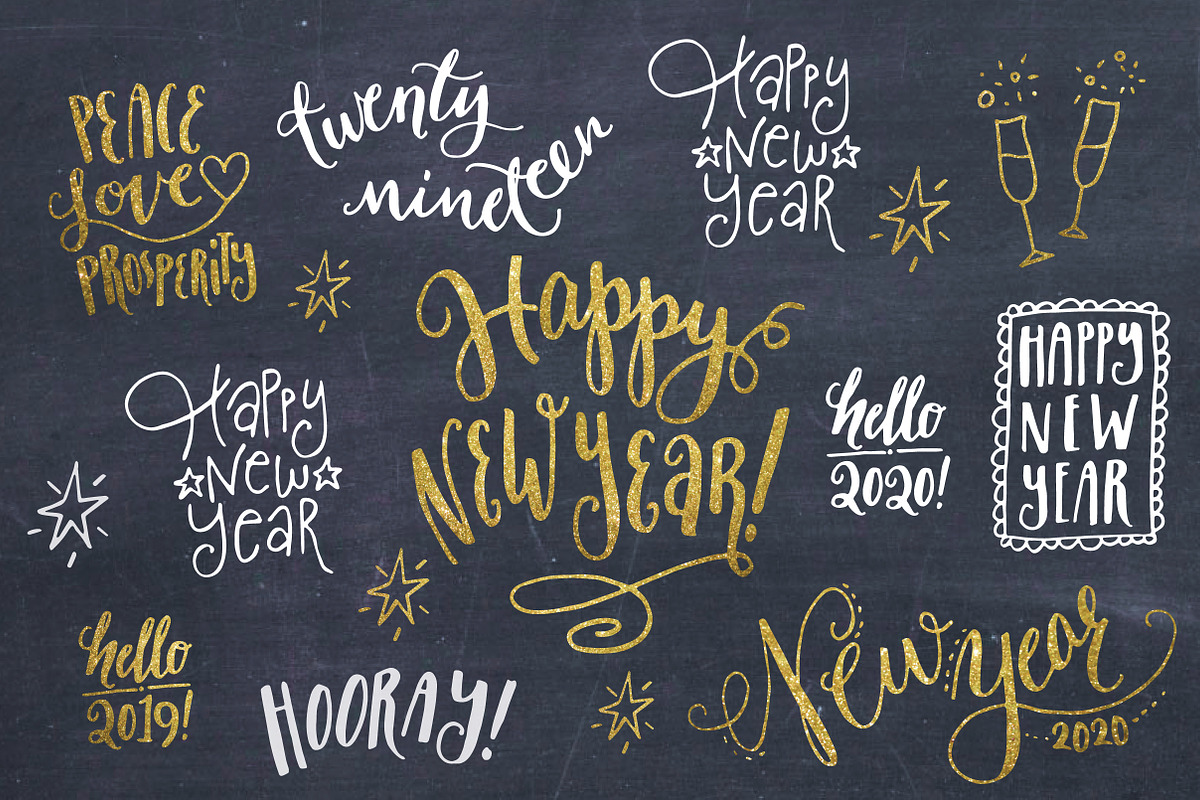 PEACE
Love
PROSPERITY
twenty
nineteen
Happy
New
year
Happy
NEW YEAR!
HAPPY
NEW
YEAR
Happy
New
year
hello
2020!
hello
2019!
HOORAY!
New year
2020